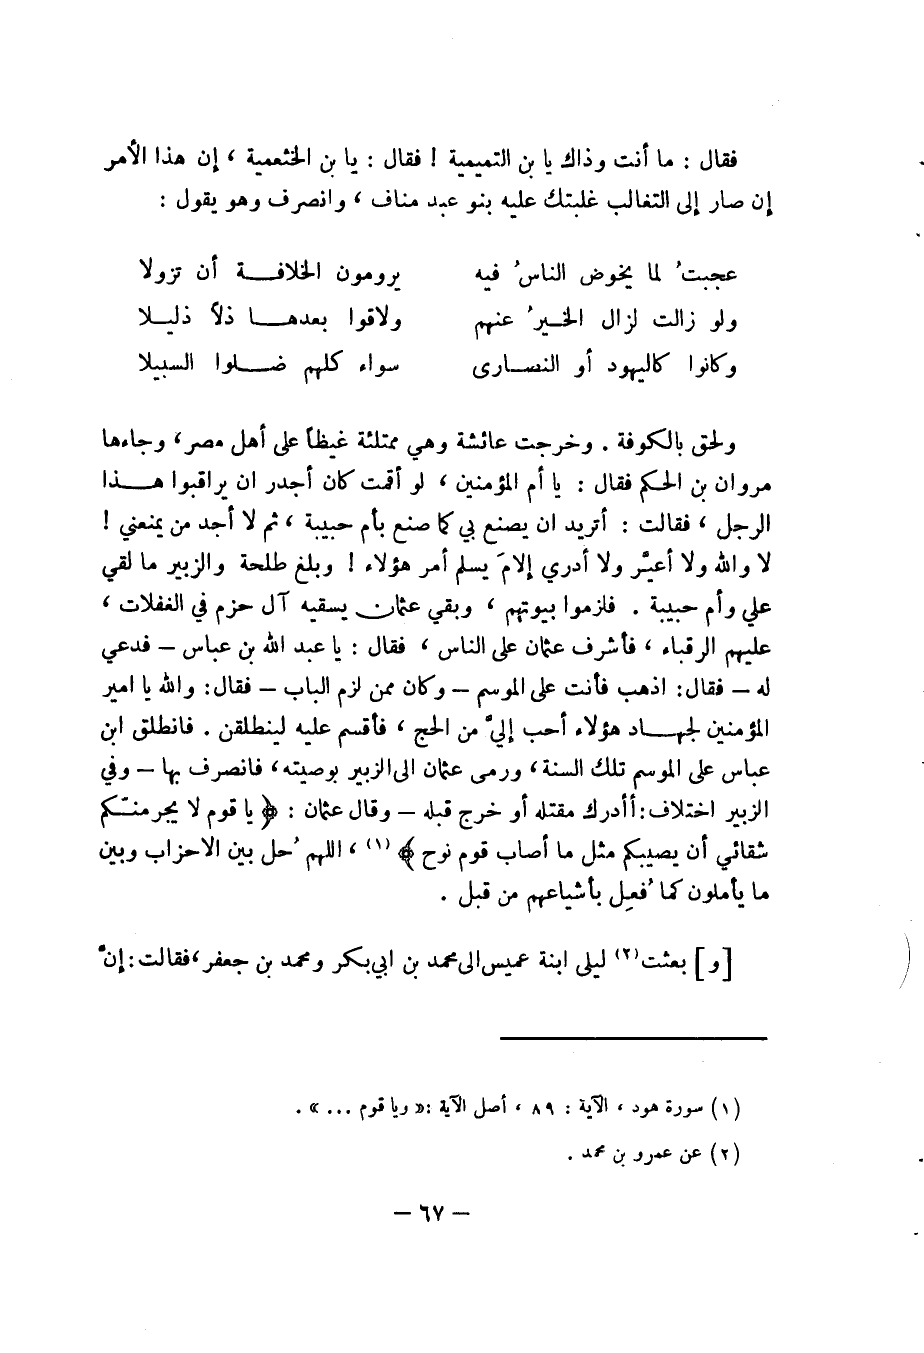 فقال : ما أنت وذاك يا بن التميمية ! فقال : يا بن الخثعمية ، إن هذا الأمر
إن صار إلى التغالب غلبتك عليه بنو عبد مناف ، وانصرف وهو يقول :
عجبتُ لما يخوض الناسُ فيه يرومون الخلافـة أن تزولا
ولو زالت لزال الخيرُ عنهم ولاقوا بعدهـا ذلاً ذليـلا
وكانوا كاليهود أو النصـارى سواء كلهم ضـلوا السبيلا
ولحق بالكوفة . وخرجت عائشة وهي ممتلئة غيظاً على أهل مصر ، وجاءها
مروان بن الحكم فقال : يا أم المؤمنين ، لو أقمت كان أجدر ان يراقبوا هـذا
الرجل ، فقالت : أتريد ان يصنع بي كما صنع بأم حبيبة ، ثم لا أجد من يمنعني !
لا والله ولا أعيَّر ولا أدري إلامَ يسلم أمر هؤلاء ! وبلغ طلحة والزبير ما لقي
علي وأم حبيبة . فلزموا بيوتهم ، وبقي عثمان يسقيه آل حزم في الغفلات ،
عليهم الرقباء ، فأشرف عثمان على الناس ، فقال : يا عبد الله بن عباس – فدعي
له – فقال: اذهب فأنت على الموسم – وكان ممن لزم الباب – فقال: والله يا امير
المؤمنين لجهـاد هؤلاء أحب إليَّ من الحج ، فأقسم عليه لينطلقن . فانطلق ابن
عباس على الموسم تلك السنة ، ورمى عثمان الى الزبير بوصيته ، فانصرف بها – وفي
الزبير اختلاف: أأدرك مقتله أو خرج قبله – وقال عثمان : ﴿ يا قوم لا يجرمنّـكم
شقائي أن يصيبكم مثل ما أصاب قوم نوح ﴾ (١) ، اللهم حُل بين الاحزاب وبين
ما يأملون كما فُعِل بأشياعهم من قبل .
[و] بعثت (٢) ليلى ابنة عميس الى محمد بن ابي بكر ومحمد بن جعفر ، فقالت: إنّ
(١) سورة هود ، الآية : ٨٩ ، أصل الآية :« ويا قوم ... » .
(٢) عن عمرو بن محمد .
– ٦٧ –